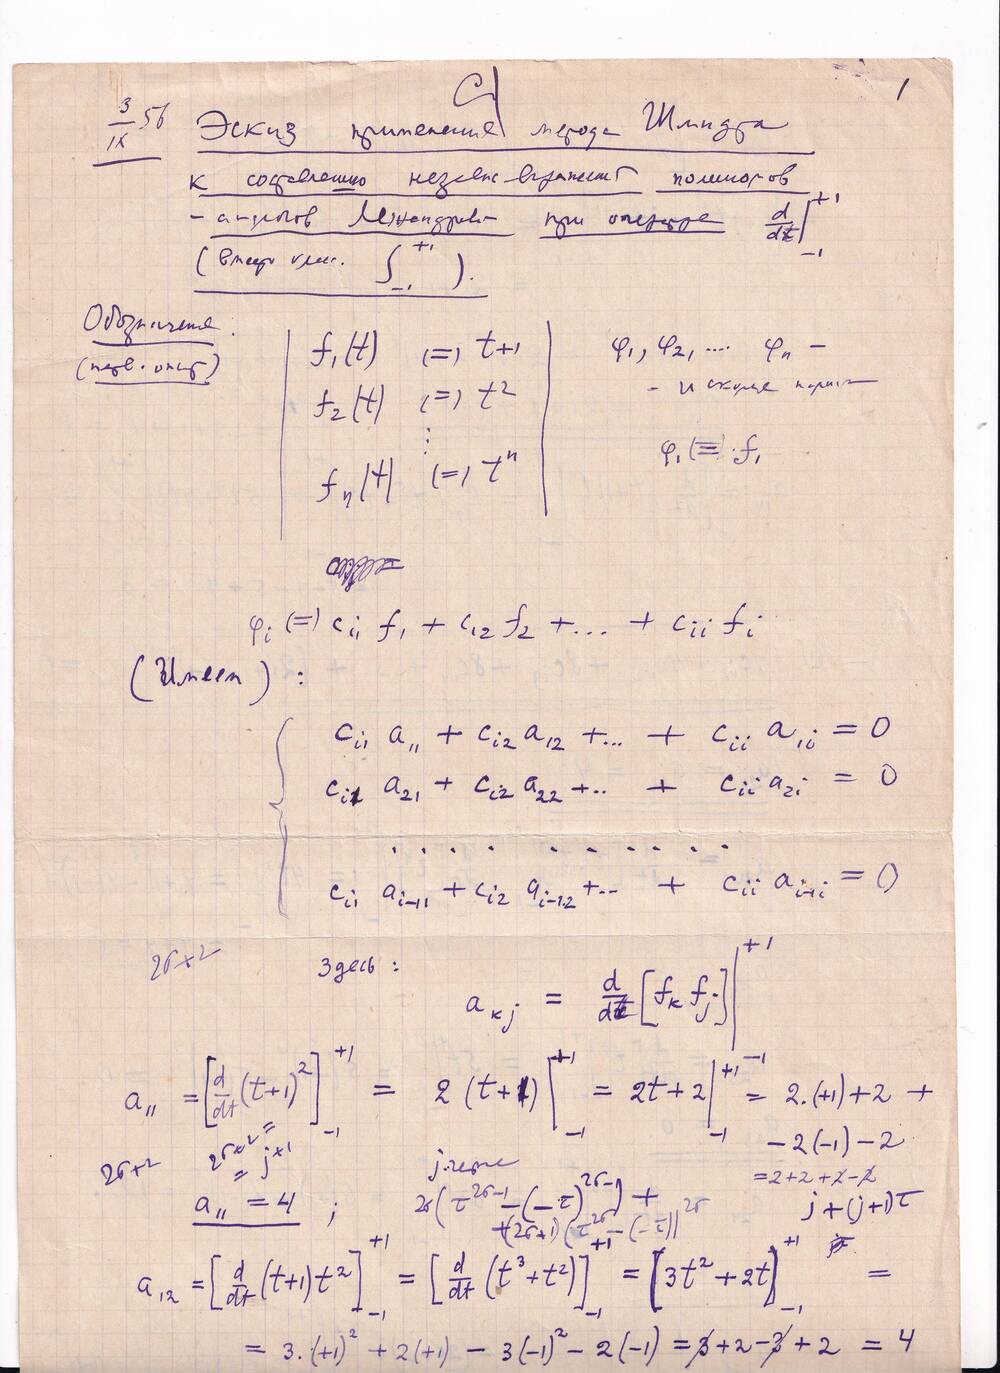 1
3/IX 56
Эскиз применения метода Шмидта
к составлению полиномов
- аналогов при операторе d/dt |₋₁⁺¹
(вместо ∫₋₁⁺¹).
Обозначения:
f₁(t) (=) t+1
φ₁, φ₂, .... φₙ –
f₂(t) (=) t²
- искомые
⋮
φ₁ (≡) f₁
fₙ(t) (=) tⁿ
φᵢ (=) cᵢ₁ f₁ + cᵢ₂ f₂ + ... + cᵢᵢ fᵢ
(Имеем) :
cᵢ₁ a₁₁ + cᵢ₂ a₁₂ + ... + cᵢᵢ a₁ᵢ = 0
cᵢ₁ a₂₁ + cᵢ₂ a₂₂ + .. + cᵢᵢ a₂ᵢ = 0
. . . . . . . . . . .
cᵢ₁ aᵢ₋₁₁ + cᵢ₂ aᵢ₋₁₂ + .. + cᵢᵢ aᵢ₋₁ᵢ = 0
2σ×2 Здесь :
aₖⱼ = d/dt [fₖ fⱼ] |₋₁⁺¹
a₁₁ = [d/dt (t+1)²]₋₁⁺¹ = 2(t+1)|₋₁⁺¹ = 2t+2|₋₁⁺¹ = 2.(+1)+2 +
- 2(-1) - 2
= 2+2+2-2
2σ×2
a₁₁ = 4 ;
j + (j+1)τ
a₁₂ = [d/dt (t+1)t²]₋₁⁺¹ = [d/dt (t³+t²)]₋₁⁺¹ = [3t²+2t]₋₁⁺¹ =
= 3.(+1)² + 2(+1) - 3(-1)² - 2(-1) = 3+2-3+2 = 4